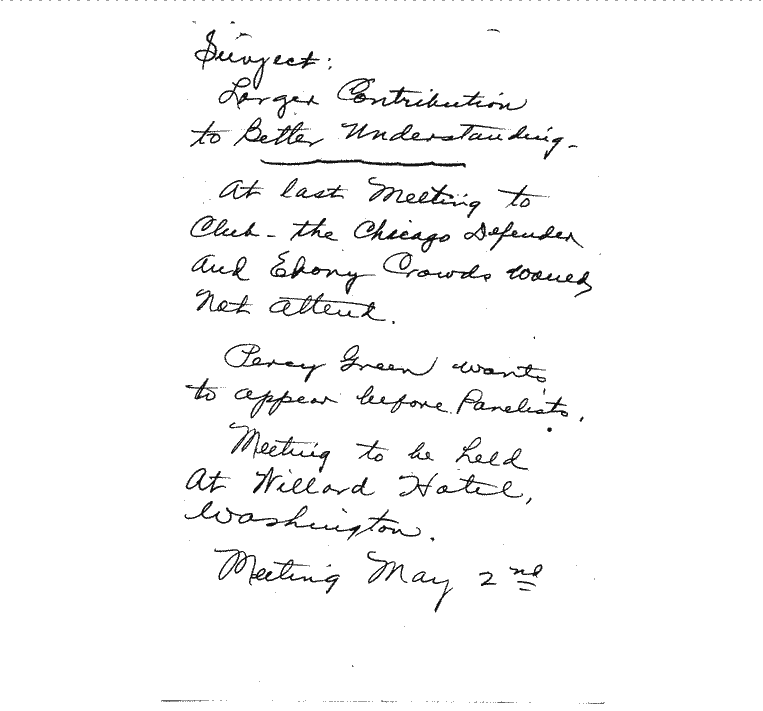 Subject:
Larger Contribution
to Better Understanding-
At last Meeting to
Club - the Chicago Defender
and Ebony Crowds would
Not attend.
Percy Green wants
to appear before Panelists.
Meeting to be held
At Willard Hotel,
Washington.
Meeting May 2nd